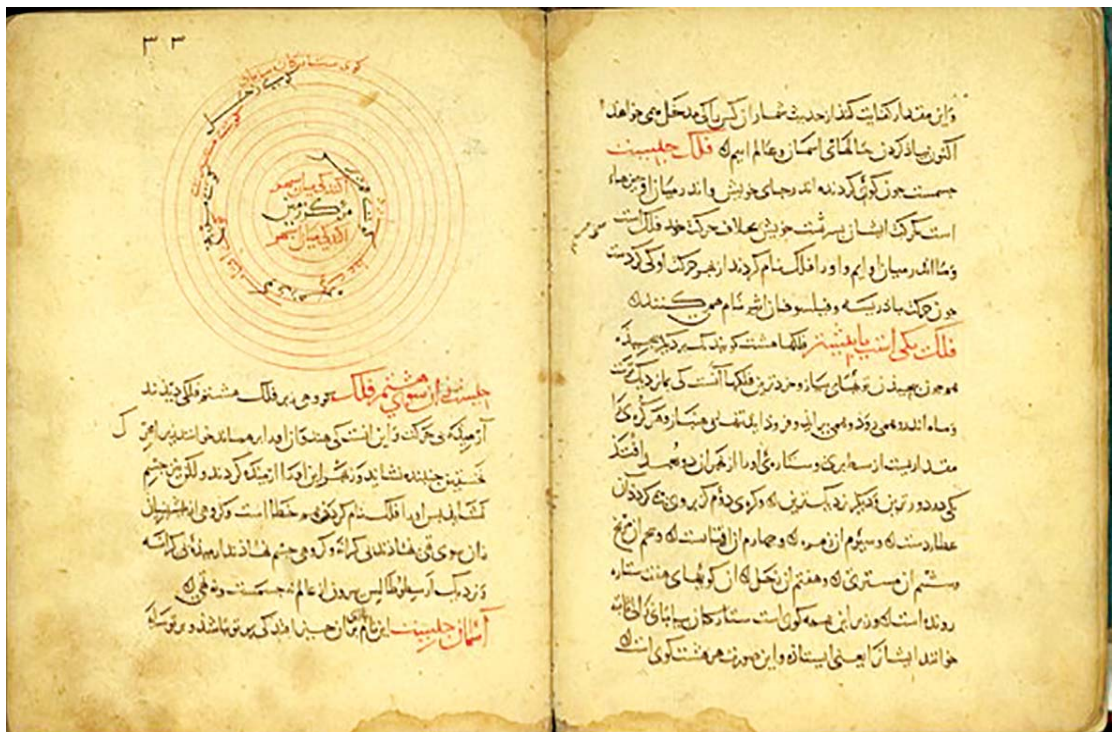 واین مقدار کفایت کند از حدیث شمار آن کس را کی مدخل می خواهد
اکنون یاذ کردن حالهای آسمان و عالم ایم فلک چیست
جسمست چون گوی گردنده اندر جای خویش و اندر میان او چیزهاء
است حرکت ایشان بسرشت خویش بخلاف حرکت خود فلک است
و ما اندر میان او ایم و او را فلک نام کردند از بهر حرکت او کی گردست
چون حرکت باذریسه و فیلسوفان اثیر نام همی کنند
فلک یکی است یا بیشتر فلکها هشت گوی اند یک بر دیگر پیچیذه
همچون پیچیذن تویهای پیاز و خردترین فلکها آنست کی بما نزدیک ترست
و ماه اندرو همی روذ و همی برآیذ و فروذ آیذ تنها بی هنباز و هر کره ی را
مقداریست از سطبری و ستاره ی او را از بهر آن دو بعد افتذ
یکی دورترین و دیگر نزدیکترین و کره ی دوم کی
عطاردست و سیوم آن زهره و چهارم آن آفتابست و پنجم آن مریخ
و ششم آن مشتری و هفتم آن زحل این گویهای هفت ستاره
رونده است و زبر این همه گوی است ستارگان بیابانی را کی ثابته
خوانند ایشانرا یعنی ایستاذه و این صورت هر هشت گوی است
۳۳
کوی ستارکان بیابانی
کوی زحل
کوی مشتری
کوی مریخ
کوی آفتاب
کوی زهره
کوی عطارد
کوی ماه
مرکز زمین
چیست از آن سوی هشتم فلک گروهی زبر فلک هشتم فلکی دیذند
آرمیذه بی حرکت و این آنست کی هندوان او را برهماند خوانند زیراک
نخستین جنباننده نشاید و ز بهر این او را آرمیذه کردند ولکن نیز جسم
نشاید پس او را فلک نام کردن خطا است و گروهی از پیشینیان
زان سوی تهی نهاذند بی کرانه و گروهی جسم نهاذند آرمیذه بی کرانه
و نزدیک ارسطوطالیس بیرون از عالم نه جسمست و نه تهی
آسمان چیست این نام بر آن چیز افتد کی زبر تو باشذ و بر تو سایه